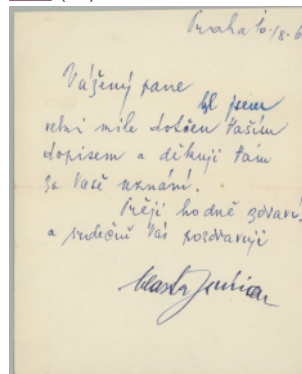 Praha 10/8.6
Vážený pane
byl jsem
velmi mile dotčen Vaším
dopisem a děkuji Vám
za Vaše uznání.
Přeji hodně zdraví
a srdečně Vás pozdravuji
Vlasta